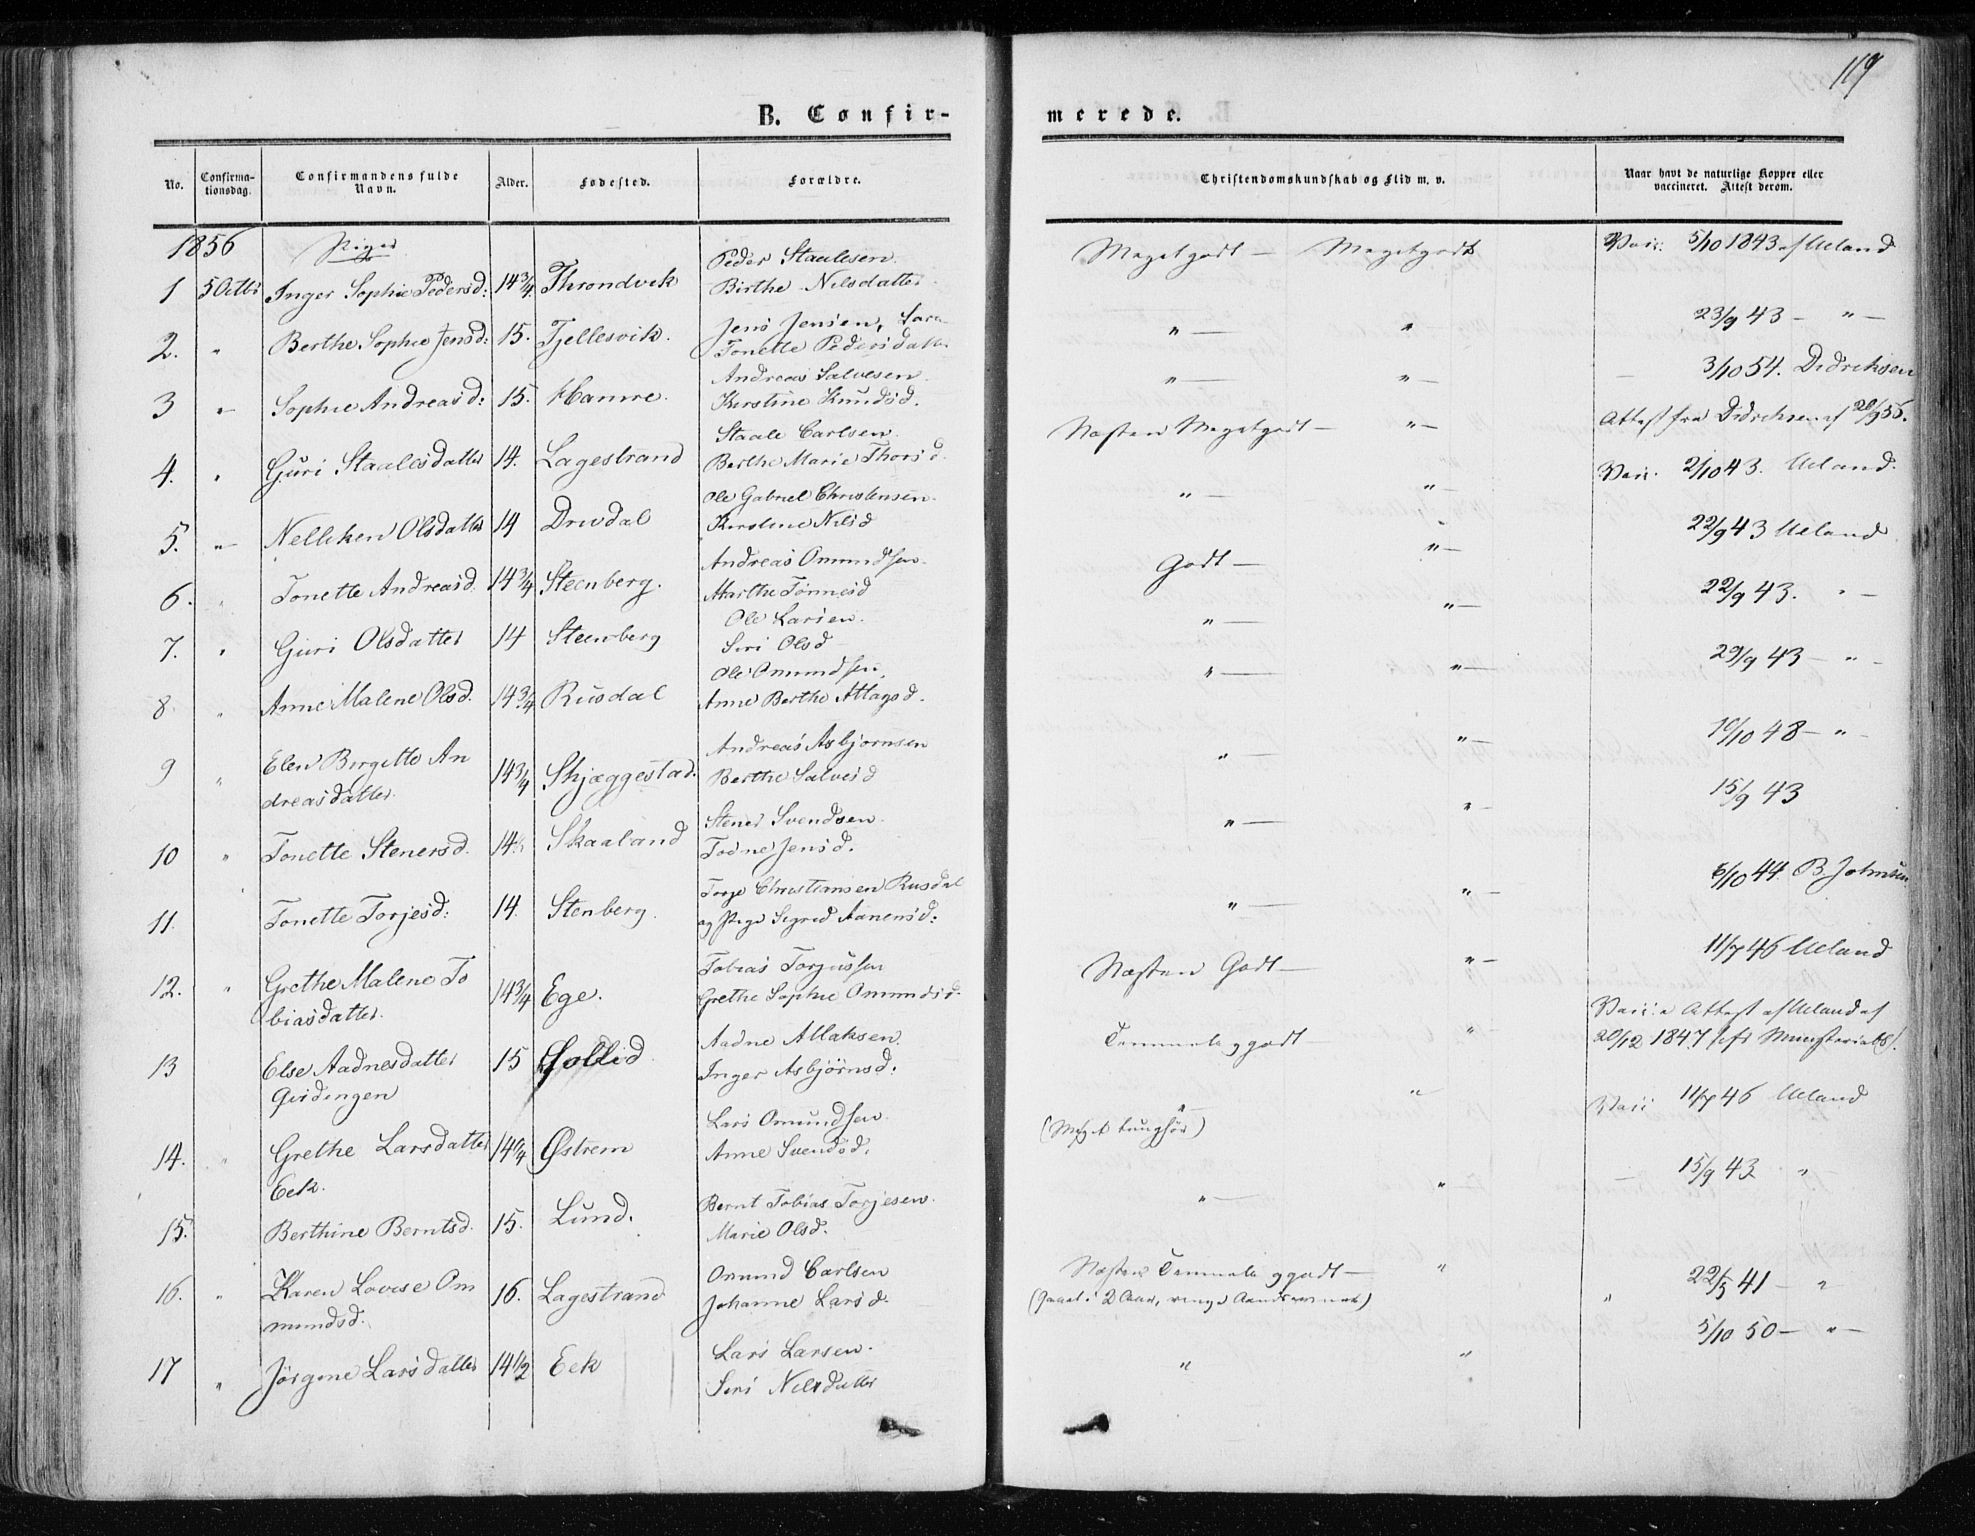 119
B. Confir-
merede.
No.
Confirma-
tionsdag.
Confirmandens fulde
Navn.
Alder.
Fødested.
Forældre.
Christendomskundskab og Flid m. v.
Naar havt de naturlige Kopper eller
vaccineret. Attest derom.
1856 Piger
Peder Staalesen.
Megetgodt — Megetgodt
5/10 1843 af Ueland
1 5 Octbr Inger Sophie Pedersd: 14 3/4 Throndvik Birthe Nilsdatter
Jens Jensen,
23/9 43 — " —
2. " Berthe Sophie Jensd: 15. Fjellesvik. Tonette Pedersdatter
" — "
Andreas Salvesen.
3/10 54. Didriksen
3 " Sophie Andreasd: 15. Hamre. Kirstine Knudsd.
" — " —
Staale Carlsen.
Næsten Megetgodt — " —
Attest fra Didriksen af 20/9 56.
4. " Guri Staalesdatter 14. Lagestrand Berthe Marie Thorsd.
Vacc. 2/10 43. Ueland.
Ole Gabriel Christensen.
" — " —
5. " Nelliken Olsdatter 14 Drivdal Kirstine Nilsd
22/9 43 Ueland
Andreas Omundsen.
Godt — " —
6. " Tonette Andreasd. 14 3/4 Steenberg. Marthe Tønnesd
22/9 43. " —
Ole Larsen.
" — " —
7. " Guri Olsdatter 14 Steenberg Siri Olsd
29/9 43 — " —
Ole Omundsen.
" — " —
8. " Anne Malene Olsd. 14 3/4 Rusdal Anne Berthe Atlagsd.
10/10 48 — " —
Andreas Asbjørnsen
" — " —
9 " Elen Birgitte An
dreasdatter. 14 3/4 Skjæggestad. Berthe Salvesd
15/9 43
Stener Svendsen.
" — " —
10 " Tonette Stenersd. 14 Skaaland Todne Jensd.
6/10 44. B. Johnsen
Torje Christiansen Rusdal
" — " —
11. Tonette Torjesd: 14. Stenberg. og Pige Sigrid Aanensd:
11/7 46 Ueland
Tobias Torjussen
Næsten Godt — " —
12. " Grethe Malene To
biasdatter. 14 3/4 Ege. Grethe Sophie Omundsd.
Attest af Ueland af
Aadne Atlaksen.
Temmelig godt "
20/12 1847
13 Else Aadnesdatter 15 Sollid Inger Asbjørnsd:
Gisdingen
11/7 46 Ueland
Lars Omundsen.
" — "
(Meget tunghør)
14. " Grethe Larsdatter 14 1/4 Østrem Anne Svendsd.
Eek.
15/9 43 "
Bernt Tobias Torjesen.
" — "
15. Berthine Berntsd. 15. Lund. Marie Olsd.
Omund Carlsen
Næsten Temmelig godt — "
22/5 41 — "
16. " Karen Lovise Om
mundsd. 16. Lagestrand Johanne Larsd.
5/10 50 — " —
Lars Larsen.
17 " Jørgine Larsdatter 14 1/2 Eek Siri Nilsdatter
" "